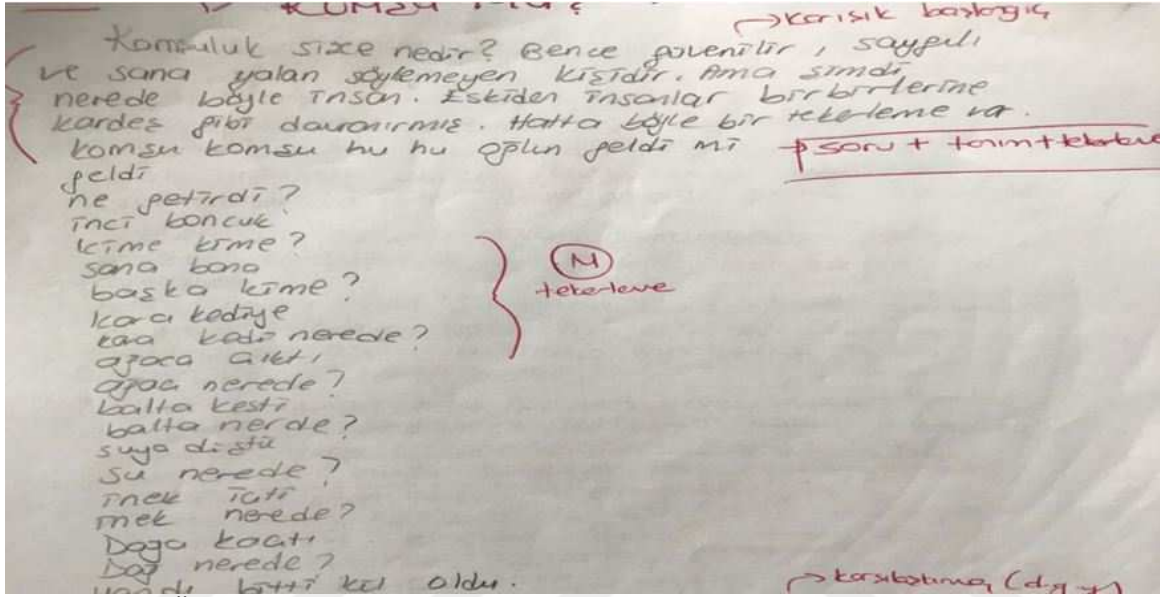 → karışık başlangıç
Komşuluk sizce nedir? Bence güvenilir, saygılı
ve sana yalan söylemeyen kişidir. Ama şimdi
nerede böyle insan. Eskiden insanlar birbirlerine
kardeş gibi davranırmış. Hatta böyle bir tekerleme var.
komşu komşu hu hu oğlun geldi mi → soru + tanım + tekerleme
geldi
ne getirdi?
inci boncuk
kime kime?
sana bana
başka kime?
M
tekerleme
kara kediye
kedi nerede?
ağaca çıktı
ağaç nerede?
balta kesti
balta nerde?
suya düştü
su nerede?
inek içti
inek nerede?
Dağa kaçtı
Dağ nerede?
bitti kül oldu.
→ karşılaştırma